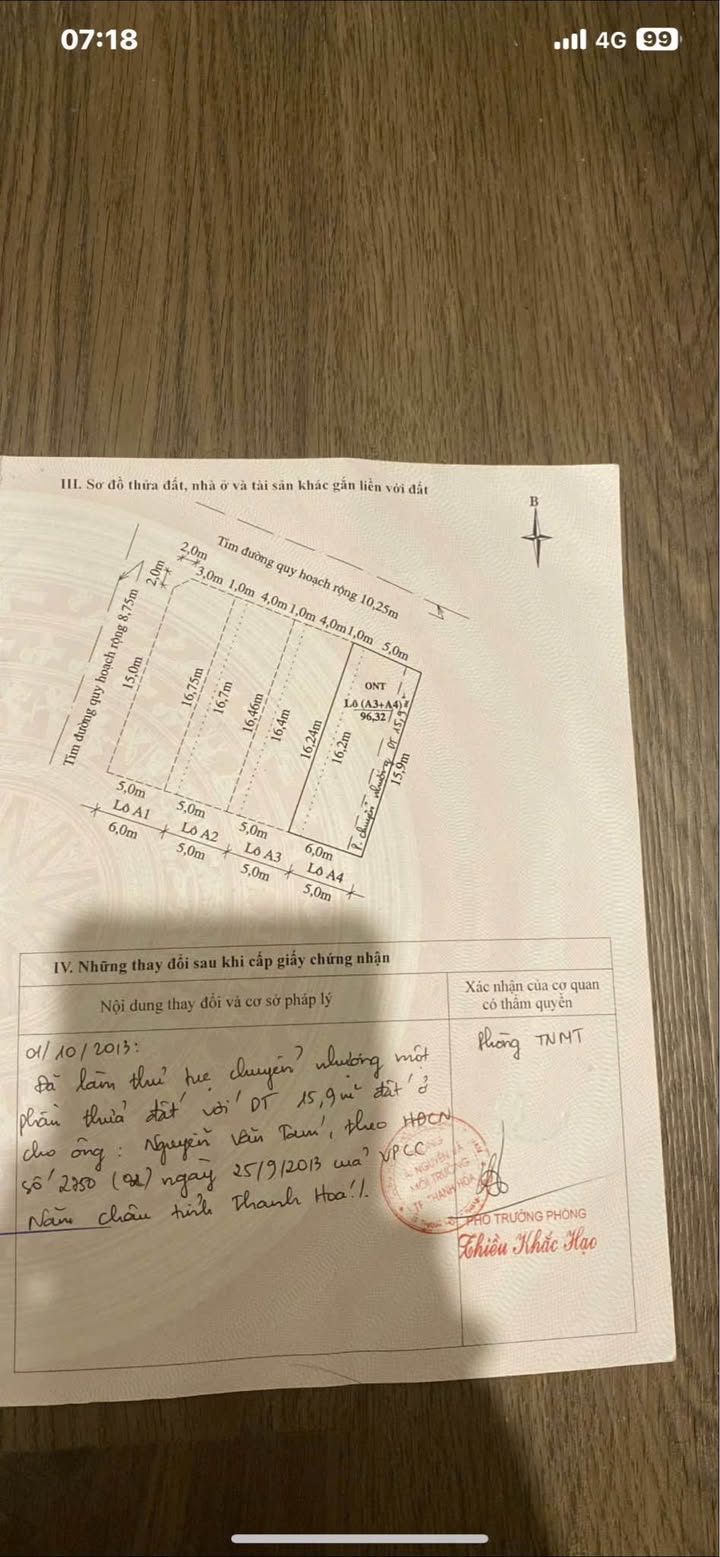 07:18
4G 99
III. Sơ đồ thửa đất, nhà ở và tài sản khác gắn liền với đất
B
Tim đường quy hoạch rộng 10,25m
Tim đường quy hoạch rộng 8,75m
2,0m
2,0m
3,0m 1,0m 4,0m 1,0m 4,0m 1,0m 5,0m
15,0m
16,75m
16,7m
16,46m
16,4m
16,24m
16,2m
15,9m
ONT
Lô (A3+A4)
96,32
P. chuyển nhượng DT 15,9
5,0m
5,0m
5,0m
6,0m
Lô A1
Lô A2
Lô A3
Lô A4
6,0m
5,0m
5,0m
5,0m
IV. Những thay đổi sau khi cấp giấy chứng nhận
Nội dung thay đổi và cơ sở pháp lý
Xác nhận của cơ quan
có thẩm quyền
01/10/2013:
Đã làm thủ tục chuyển nhượng một
phần thửa đất với DT 15,9m² đất ở
cho ông: Nguyễn Văn Tám, theo HĐCN
số 2350 ngày 25/9/2013 của VPCC
Năm Châu tỉnh Thanh Hoá./.
Phòng TNMT
NGUYÊN VÀ
MÔI TRƯỜNG
TP THANH HÓA
PHÓ TRƯỞNG PHÒNG
Thiều Khắc Hạo